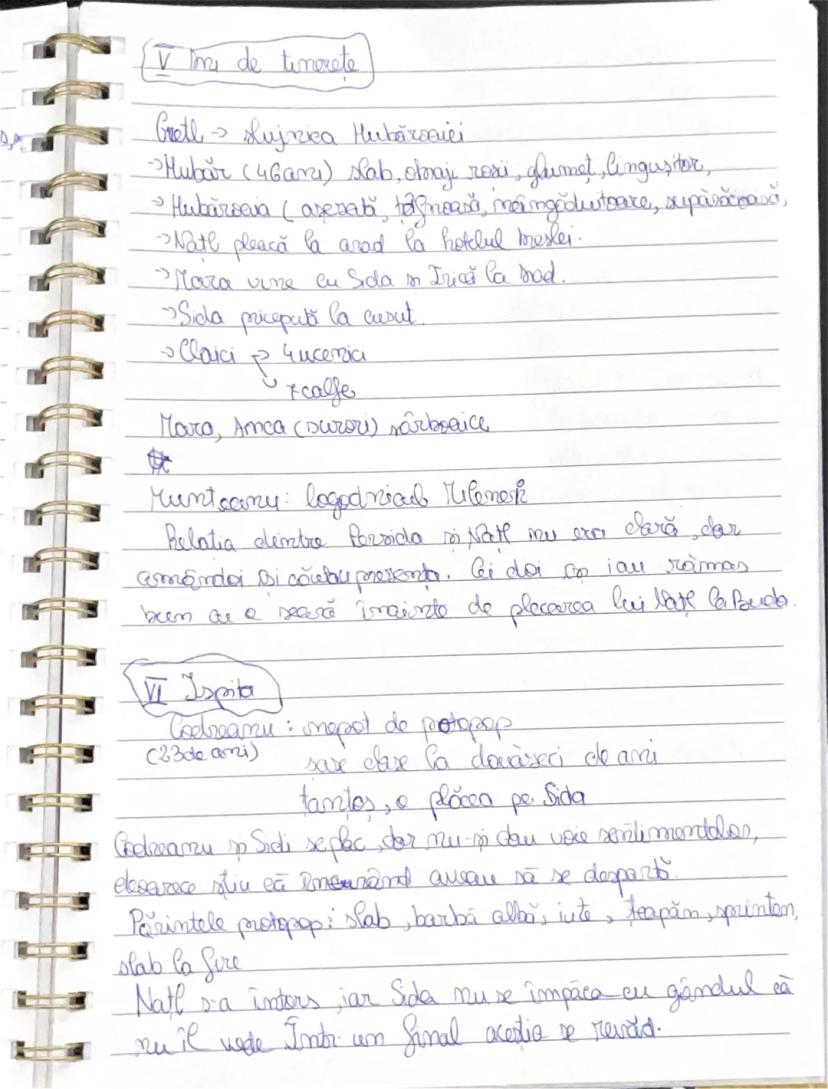 V Ini de tinerețe
Gretl -> slujnica Hubăroaiei
->Hubăr (46ani) slab, obraji roșii, glumeț, lingușitor,
-> Hubăroaia (așezată, țâfnoasă, neîngăduitoare, supărăcioasă,
->Natl pleacă la arad la hotelul
->Mara vine cu Sida și Trică la arad.
->Sida pricepută la cusut.
->Claici -> 4ucenici
-> 7calfe
Mara, Anca (surori) sârboaice
Munteanu: logodnicul Milenei
Relatia dintre Persida și Natl nu era clară, dar
amândoi își căutau prezența. Cei doi și iau rămas
bun cu o seară înainte de plecarea lui Natl la Buda.
VI Ispita
Codreanu : nepot de protopop
(23de ani) șase clase la douăzeci de ani
țanțoș, o plăcea pe Sida
Codreanu și Sidi se plac, dar nu-și dau voie sentimentelor,
deoarece știu că aveau să se despartă.
Părintele protopop: slab, barbă albă, iute, țeapăn, sprinten,
slab la fire
Natl s-a întors, iar Sida nu se împăca cu gândul că
nu îl vede Într un final aceștia se revăd.